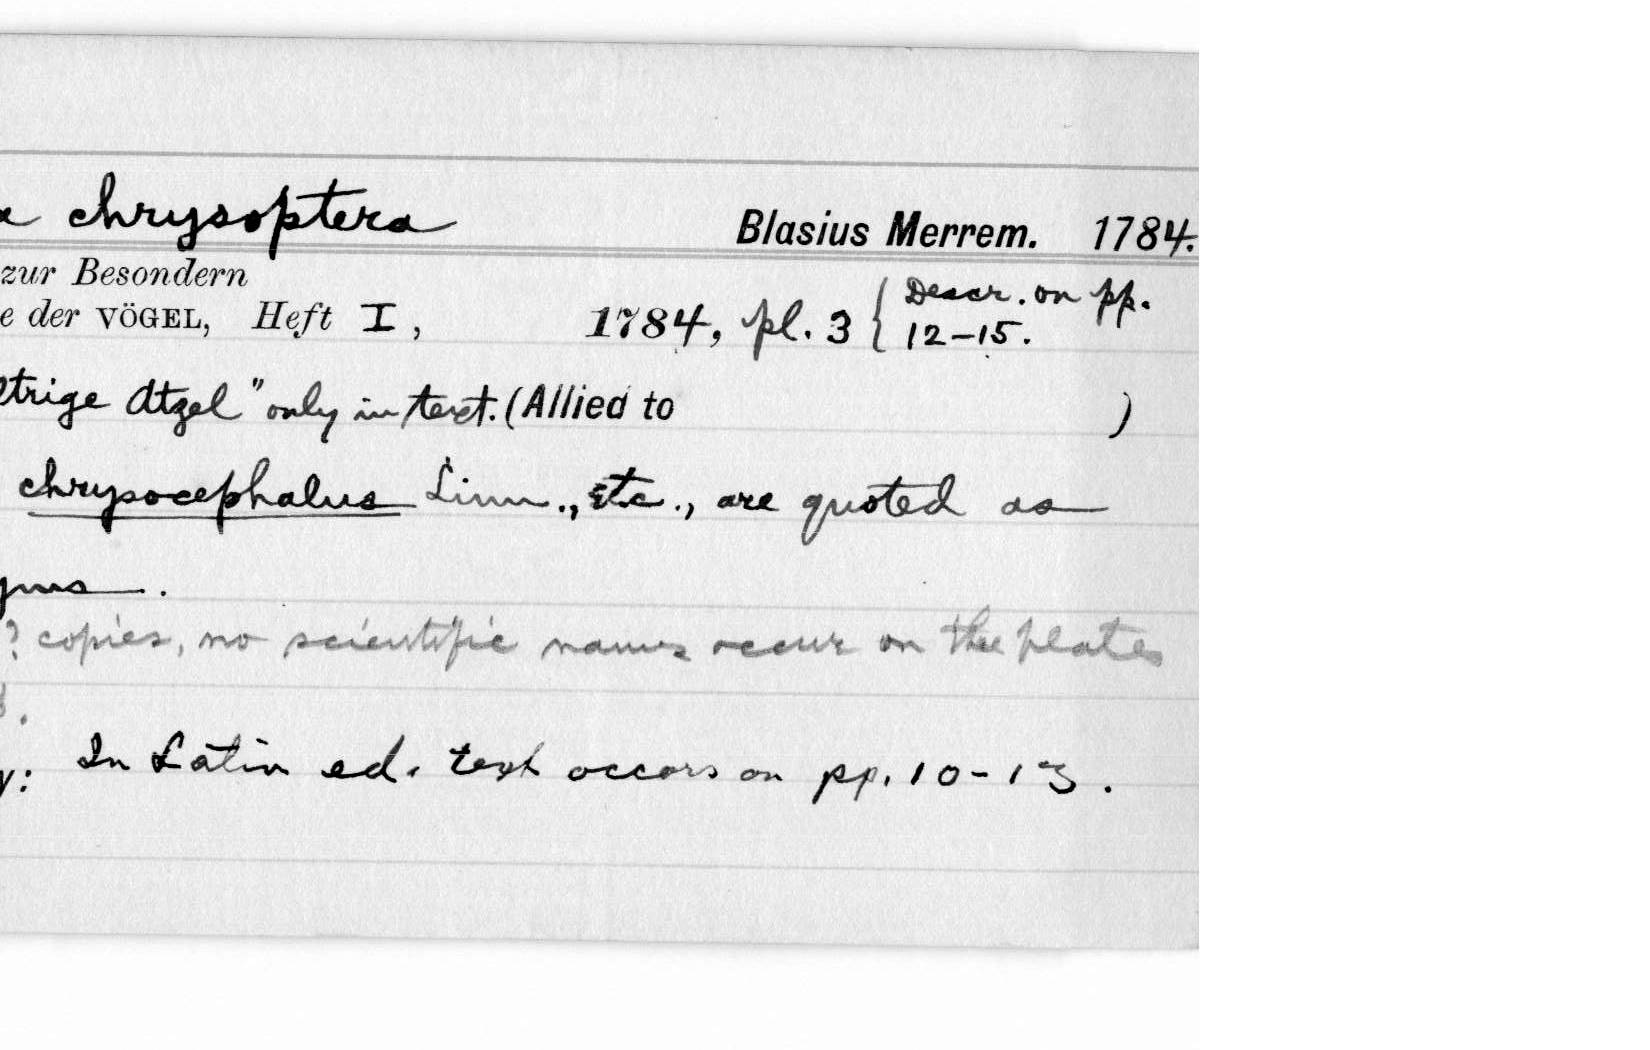 chrysoptera Blasius Merrem. 1784.
zur Besondern
e der VÖGEL, Heft I, 1784, pl. 3 { Descr. on pp.
12-15.
trige Atzel" only in text. (Allied to )
chrysocephalus Linn., etc., are quoted as
yms.
? copies, no scientific names occur on the plates
y: In Latin ed. text occurs on pp. 10-13.